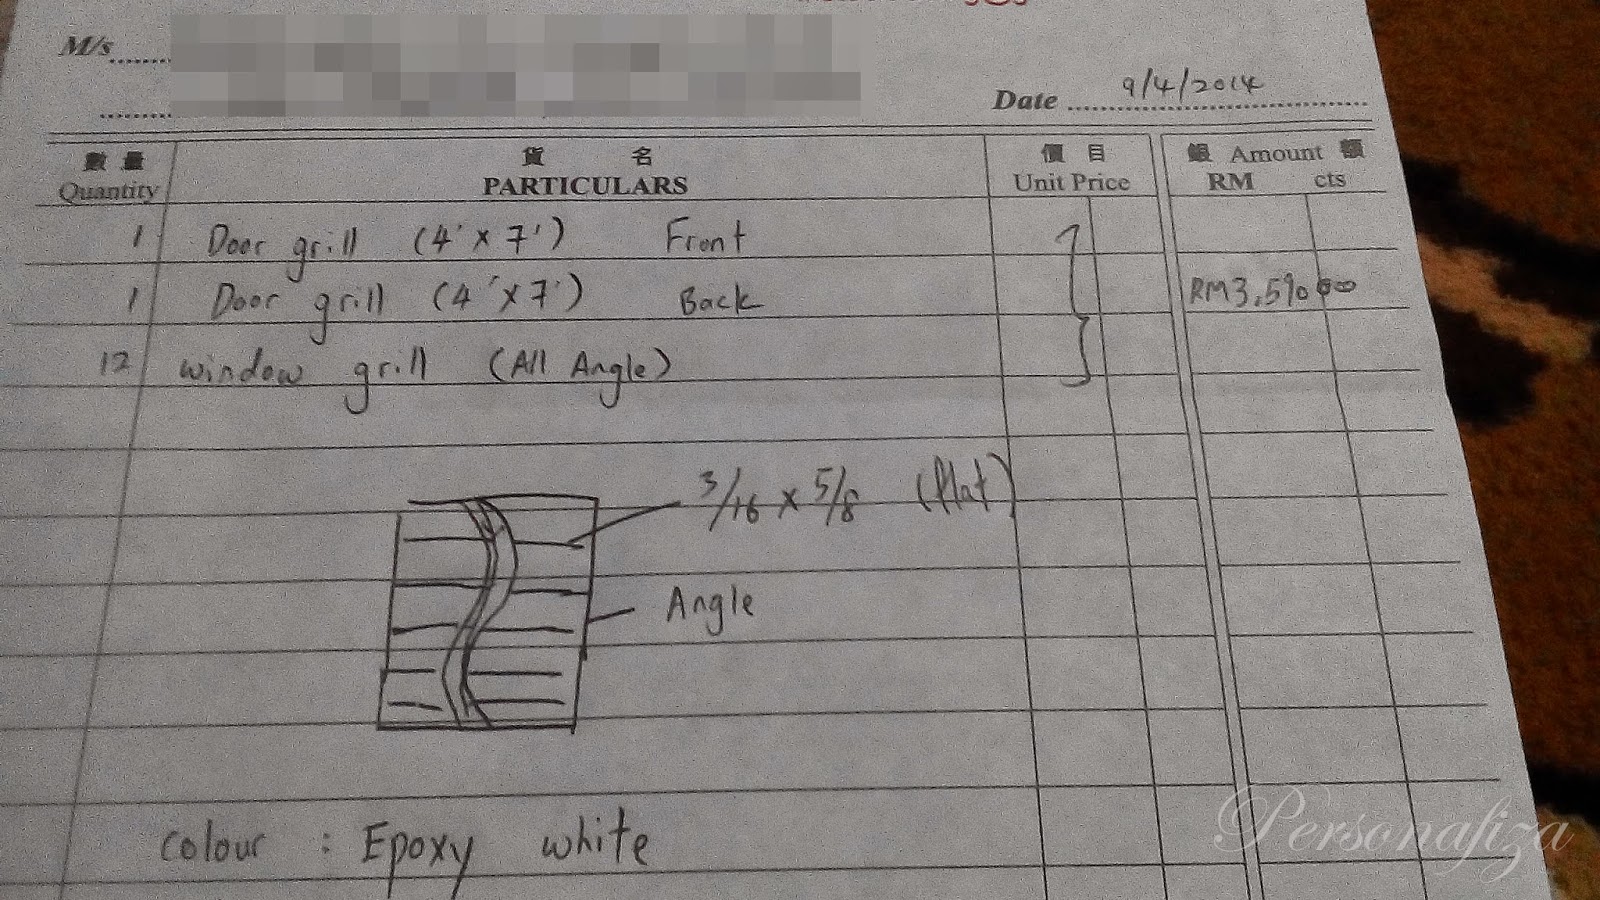 M/s
Date 9/4/2014
數量 貨名 價目 銀 Amount 額
Quantity PARTICULARS Unit Price RM cts
1 Door grill (4' x 7') Front
1 Door grill (4' x 7') Back RM3,590 00
12 window grill (All Angle)
3/16 x 5/8 (flat)
Angle
colour : Epoxy white
Personafiza